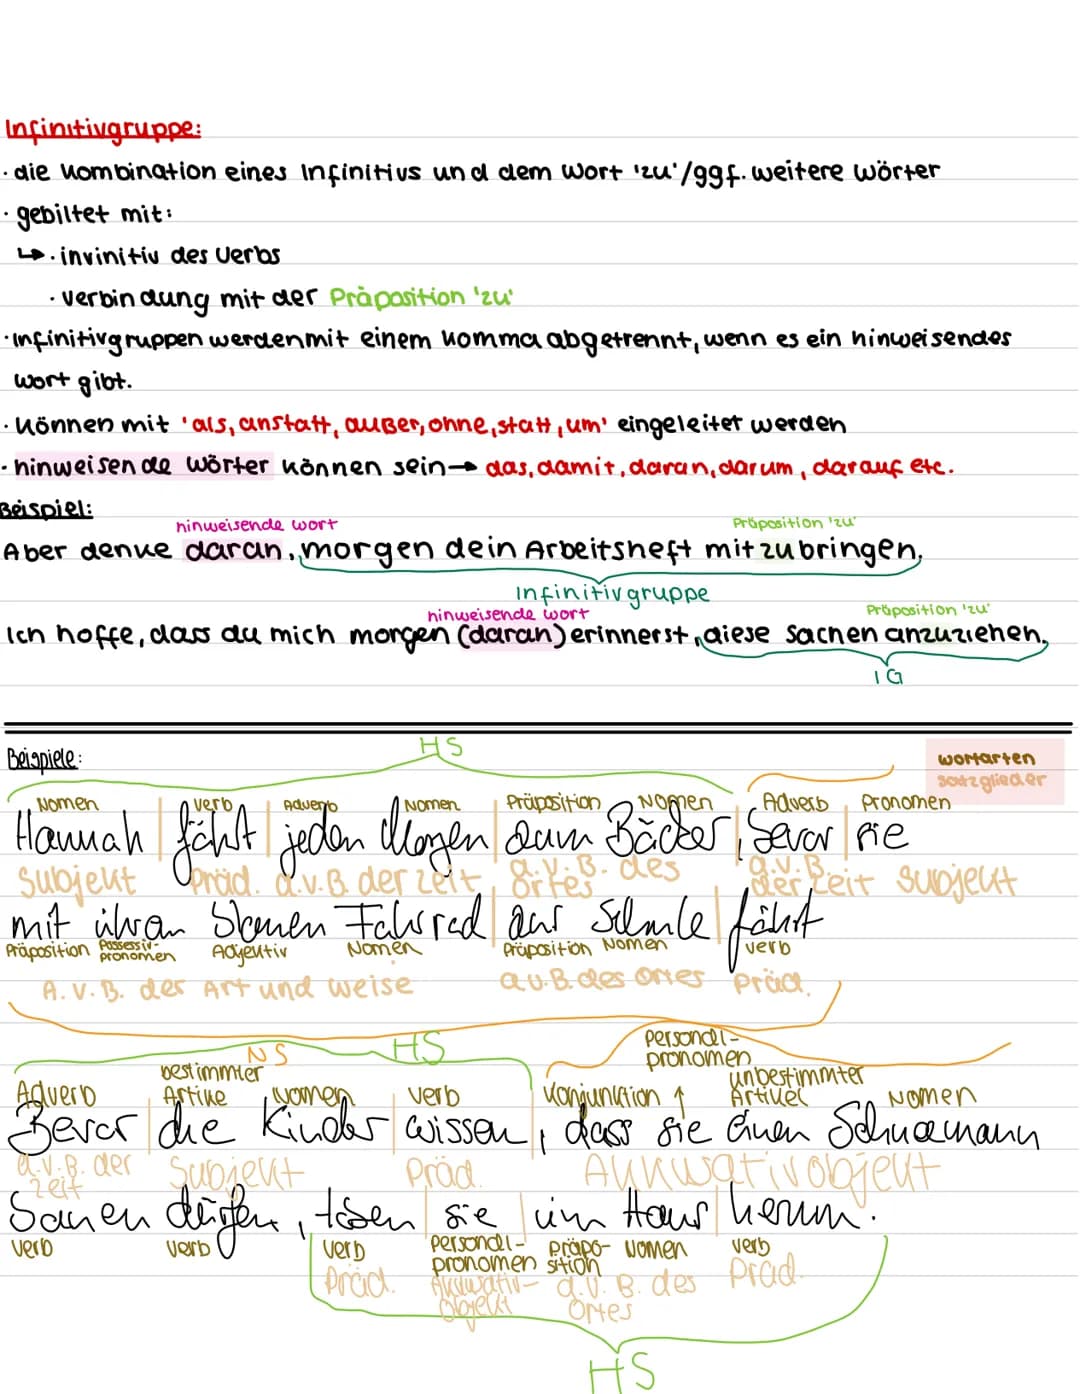 Infinitivgruppe:
· die Kombination eines Infinitivs und dem Wort 'zu'/ggf. weitere Wörter
· gebiltet mit:
↳ · invinitiv des Verbs
· Verbindung mit der Präposition 'zu'
· Infinitivgruppen werden mit einem Komma abgetrennt, wenn es ein hinweisendes
Wort gibt.
· Können mit 'als, anstatt, außer, ohne, statt, um' eingeleitet werden
· hinweisende Wörter können sein → das, damit, daran, darum, darauf etc.
Beispiel:
hinweisende wort Präposition 'zu'
Aber denke daran, morgen dein Arbeitsheft mitzubringen.
Infinitivgruppe
hinweisende wort Präposition 'zu'
Ich hoffe, dass du mich morgen (daran) erinnerst, diese Sachen anzuziehen.
IG
HS
Beispiele: wortarten
satzglieder
Nomen verb Adverb Nomen Präposition Nomen Adverb Pronomen
Hannah | fährt | jeden Morgen | zum Bäcker, | bevor | sie
Subjekt Präd. a.v.B. der zeit a.v.B. des ortes a.v.B. der Zeit Subjekt
mit ihrem Fahrrad | zur Schule | fährt
Präposition Possessiv-pronomen Adjektiv Nomen Präposition Nomen verb
A.v.B. der Art und weise a.v.B. des Ortes Präd.
NS HS personal-pronomen
Adverb bestimmter Artikel Nomen verb Konjunktion ↑ unbestimmter Artikel Nomen
Bevor | die Kinder | wissen, dass sie einen Schneemann
a.v.B. der zeit Subjekt Präd. Akkusativobjekt
bauen dürfen, toben | sie | im Haus | herum.
verb verb verb personal-pronomen präpo-sition Nomen verb
Präd. Akkusativ-objekt a.v.B. des Ortes Präd.
HS